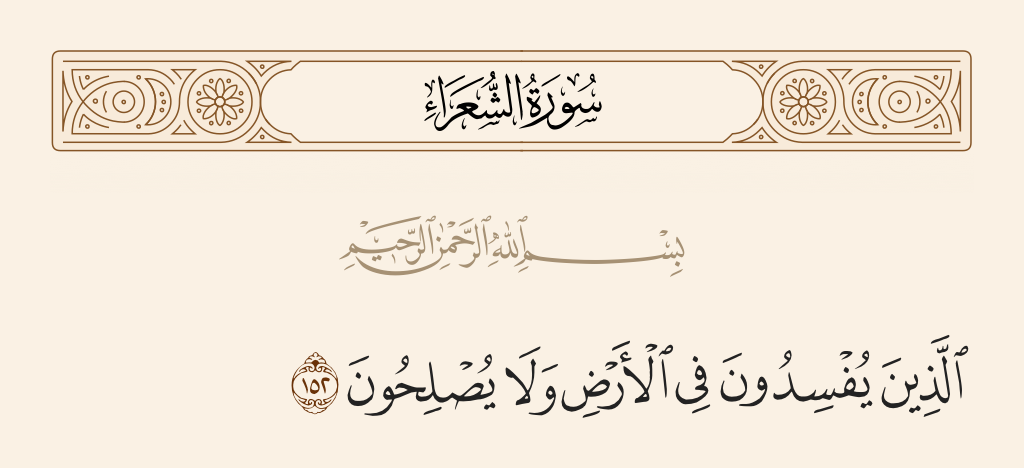 سُورَةُ الشُّعَرَاءِ
بِسْمِ ٱللَّهِ ٱلرَّحْمَٰنِ ٱلرَّحِيمِ
ٱلَّذِينَ يُفْسِدُونَ فِى ٱلْأَرْضِ وَلَا يُصْلِحُونَ ١٥٢